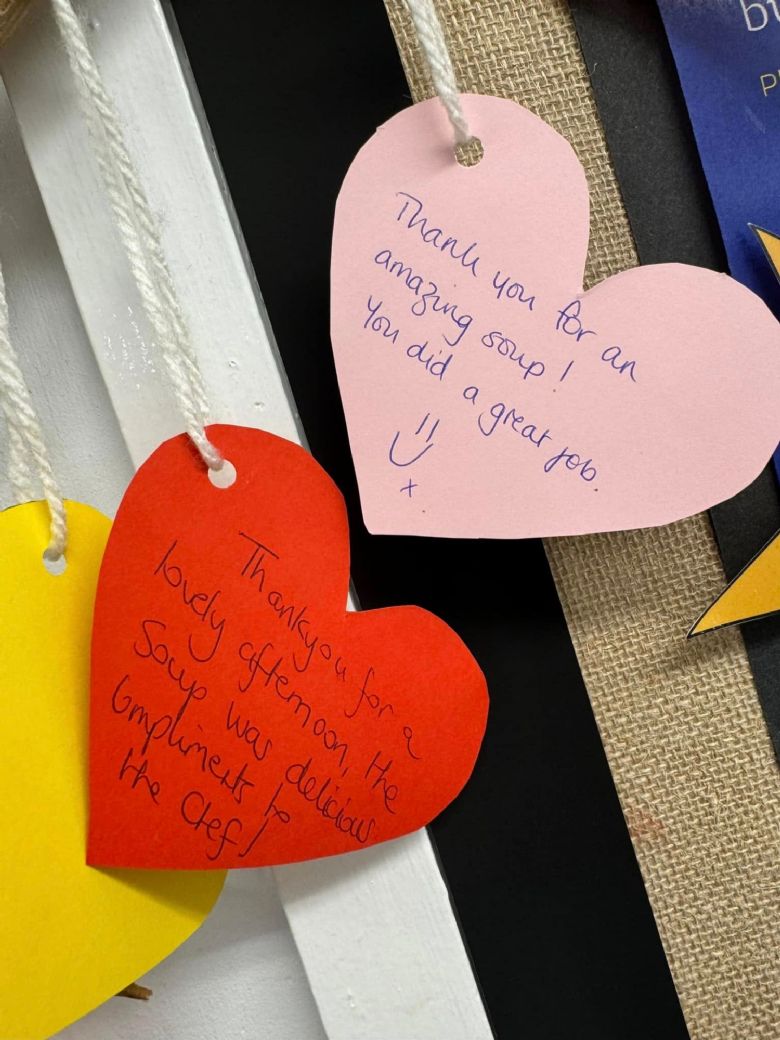 bu
Pl
Thank you for an
amazing soup!
You did a great job.
x
Thankyou for a
lovely afternoon, the
Soup was delicious
Compliments to
the Chef!